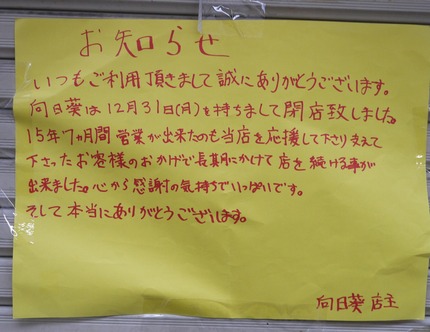 お知らせ
いつもご利用頂きまして誠にありがとうございます。
向日葵は12月31日(月)を持ちまして閉店致しました。
15年7ヵ月間営業が出来たのも当店を応援して下さり支えて
下さったお客様のおかげで長期にかけて店を続ける事が
出来ました。心から感謝の気持ちでいっぱいです。
そして本当にありがとうございます。
向日葵 店主